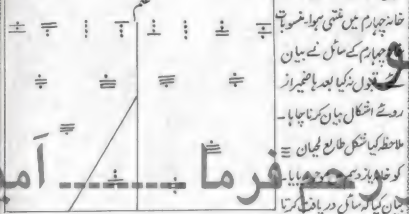 خانہ چہارم میں منتہی ہوا۔ منسوبات
چہارم کے سائل نے بیان
قبول نہ کیا بعد باضمیر از
روئے اشکال بیان کرنا چاہا۔
ملاحظہ کیا شکل طالع لحیان
کو خانہ یازدہم
کیا کہ سائل دریافت کرتا
رحم فرما ...... آمد